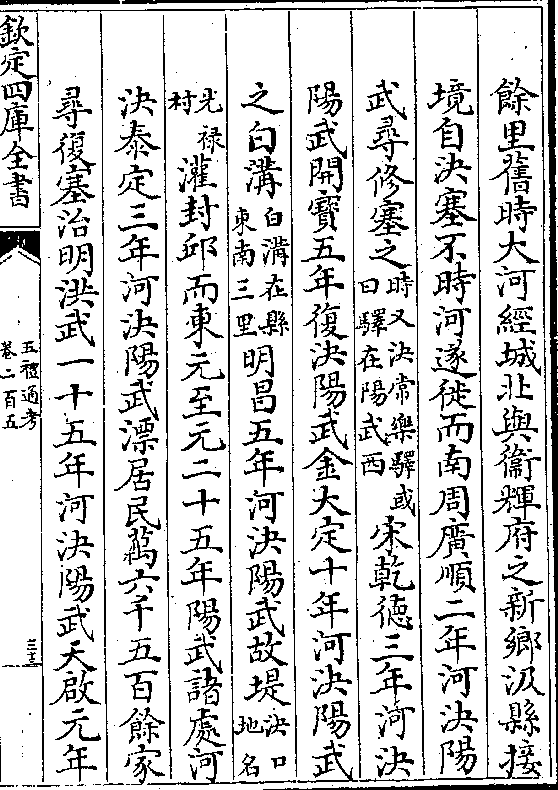 餘里舊時大河經城北與衞輝府之新鄉汲縣接
境自決塞不時河遂徙而南周廣順二年河決陽
武尋修塞之時又決常樂驛或曰驛在陽武西宋乾徳三年河決
陽武開寶五年復決陽武金大定十年河決陽武
之白溝白溝在縣東南三里明昌五年河決陽武故堤決口地名
光禄村灌封邱而東元至元二十五年陽武諸處河
決泰定三年河決陽武漂居民萬六千五百餘家
尋復塞治明洪武一十五年河決陽武天啟元年
欽定四庫全書
五禮通考
卷二百五